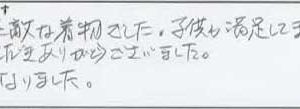 す
敵な着物でした。子供も満足してま
だきありがとうございました。
なりました。